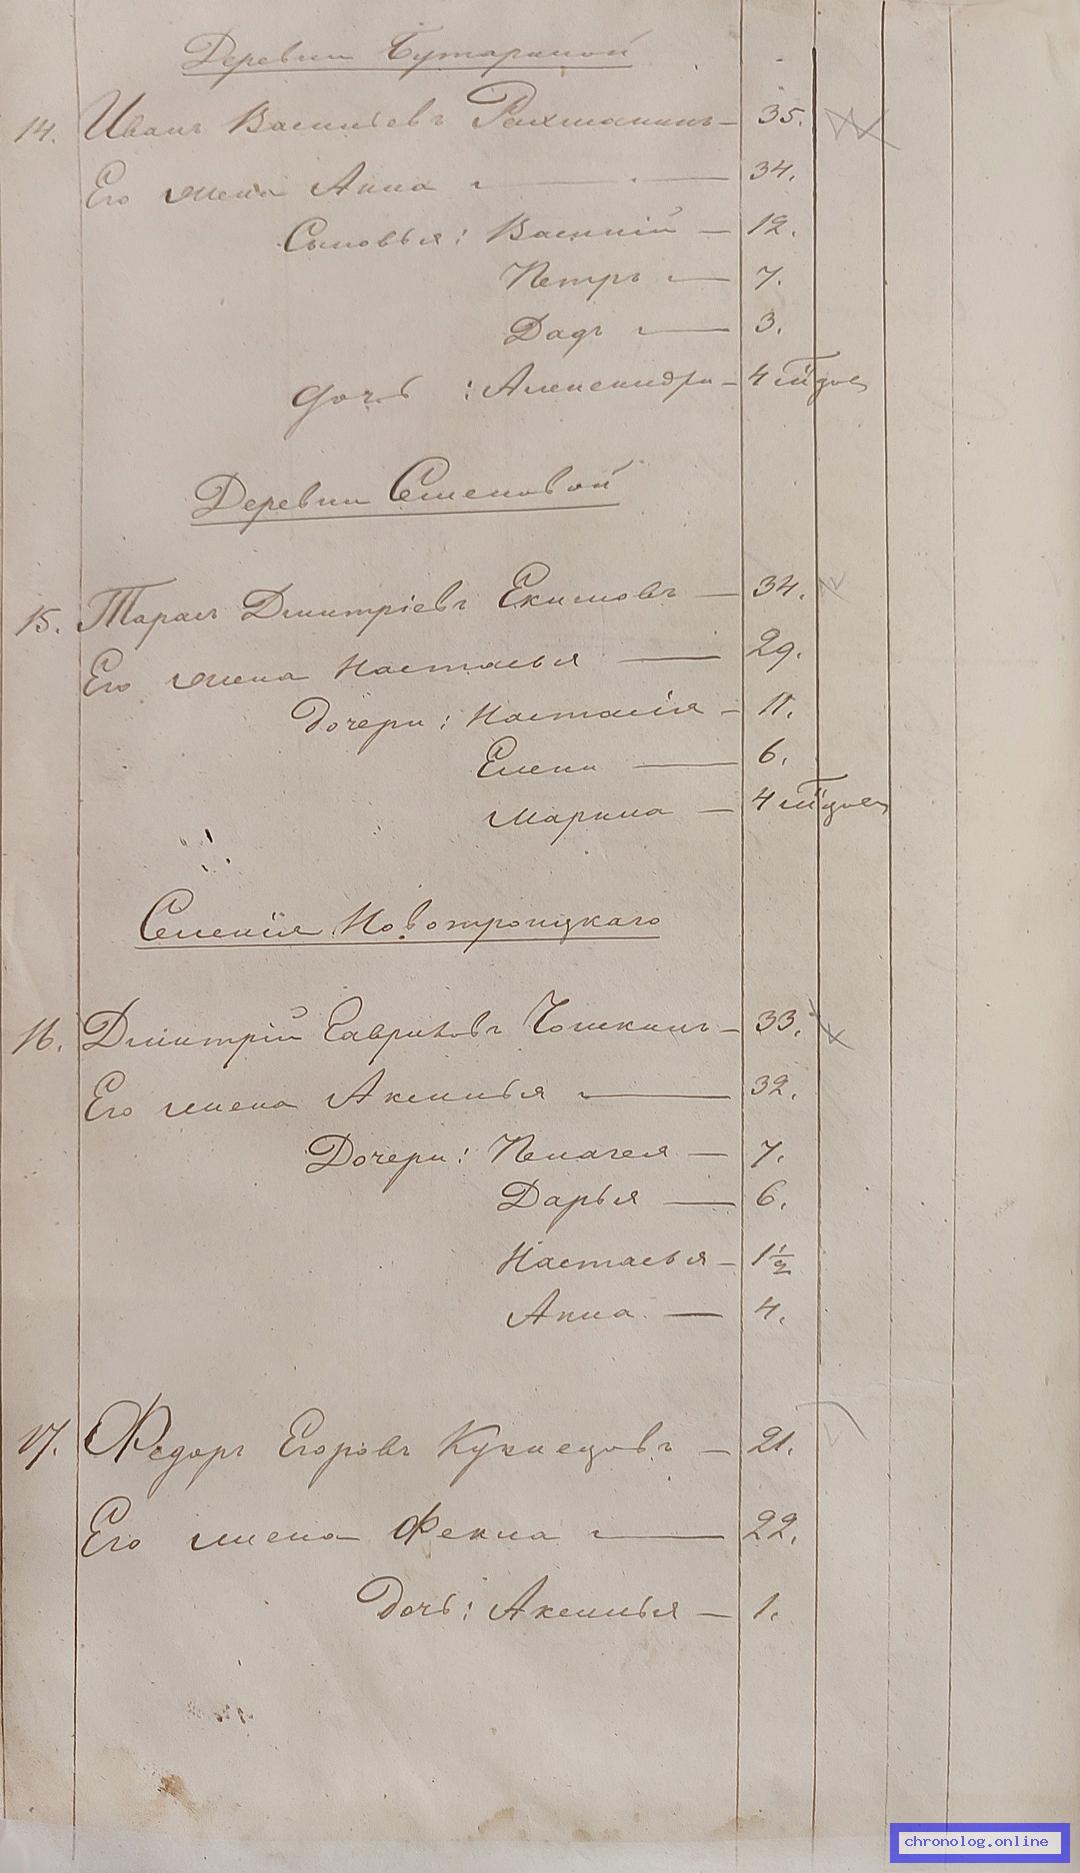 Деревни Бутариной
14. Иванъ Васильевъ Рахманинъ — 35.
Его жена Анна — 34.
Сыновья: Василий — 12.
Петръ — 7.
Дадъ — 3.
Дочь: Александра — 4 м
Деревни Семеновой
15. Тарасъ Дмитріевъ Екимовъ — 34.
Его жена Настасья — 29.
Дочери: Настасія — 11.
Елена — 6.
Марина — 4 м
Селенія Новотроицкаго
16. Дмитрій Гавриловъ Чошкинъ — 33.
Его жена Аксинья — 32.
Дочери: Пелагея — 7.
Дарья — 6.
Настасья — 1 1/2
Анна — 4.
17. Федоръ Егоровъ Кузнецовъ — 21.
Его жена Фекла — 22.
Дочь: Аксинья — 1.
chronolog.online